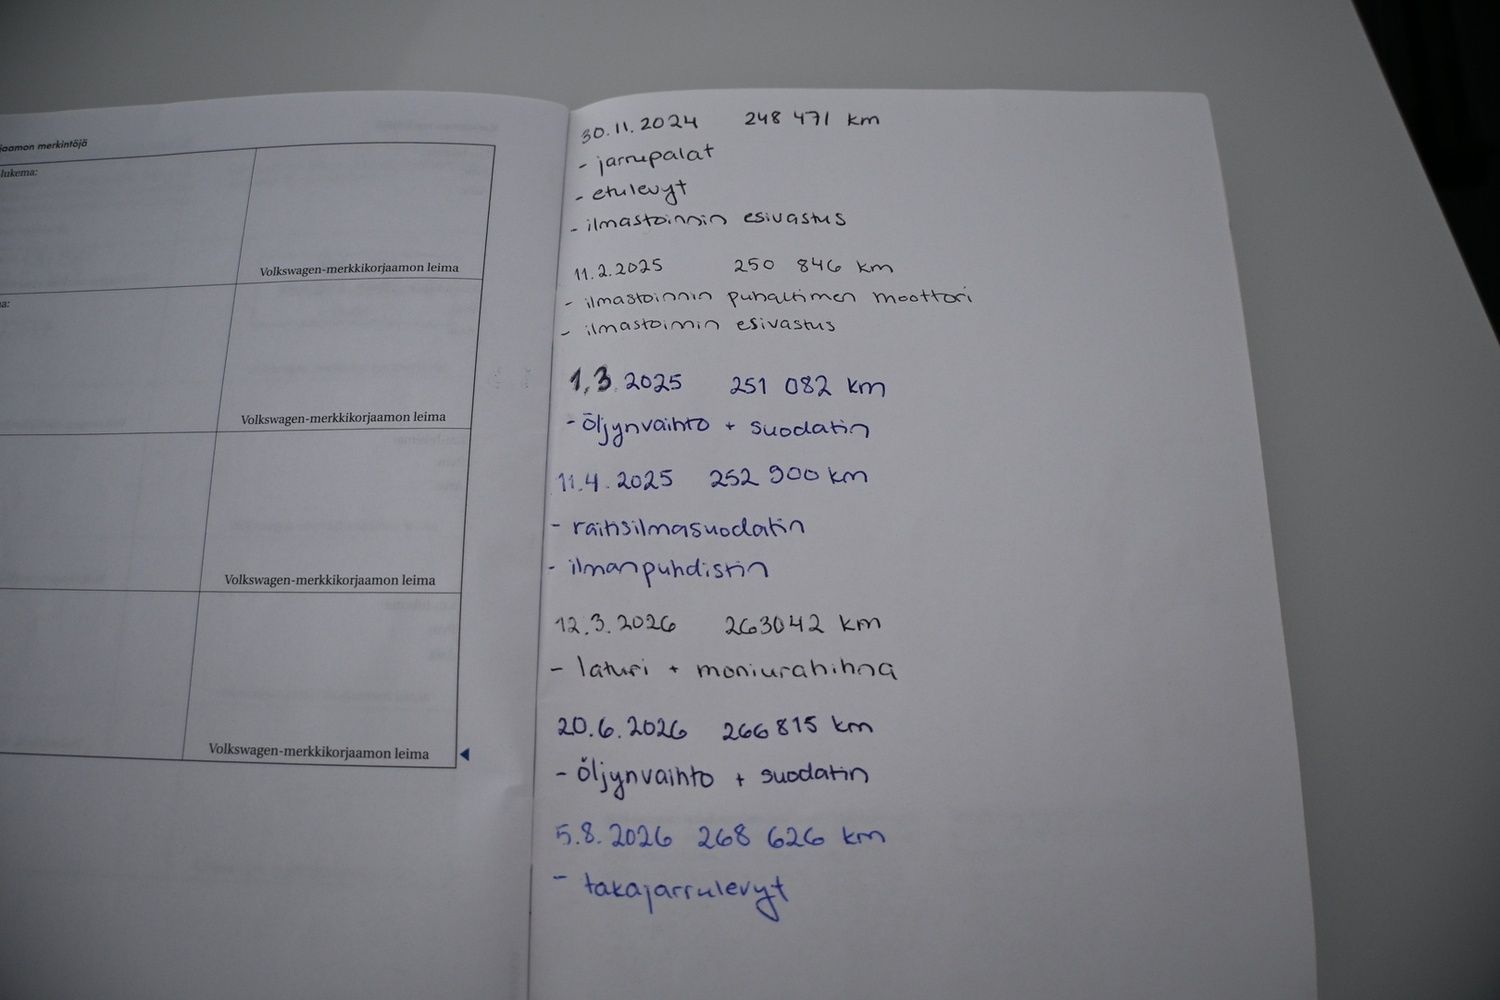 jaamon merkintöjä
lukema:
Volkswagen-merkkikorjaamon leima
a:
Volkswagen-merkkikorjaamon leima
Volkswagen-merkkikorjaamon leima
Volkswagen-merkkikorjaamon leima
30.11.2024 248 471 km
- jarrupalat
- etulevyt
- ilmastoinnin esivastus
11.2.2025 250 846 km
- ilmastoinnin puhaltimen moottori
- ilmastoinnin esivastus
1.3.2025 251 082 km
- öljynvaihto + suodatin
11.4.2025 252 900 km
- raitisilmasuodatin
- ilmanpuhdistin
12.3.2026 263042 km
- laturi + moniurahihna
20.6.2026 266815 km
- öljynvaihto + suodatin
5.8.2026 268 626 km
- takajarrulevyt